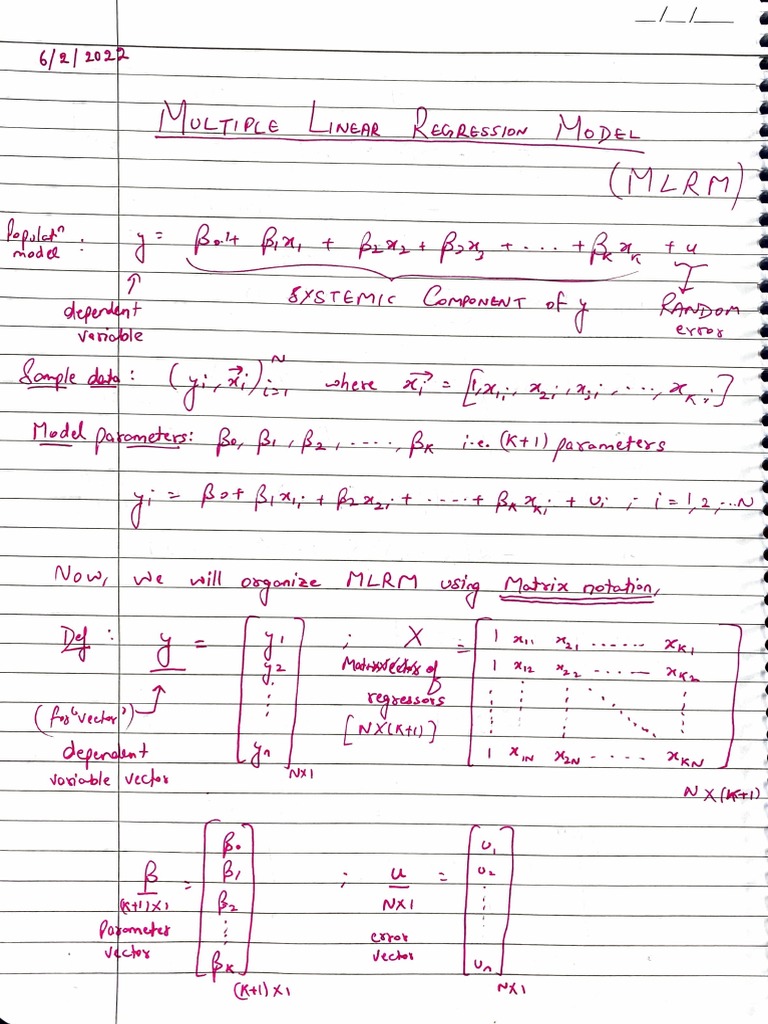 __/__/____
6/2/2022
MULTIPLE LINEAR REGRESSION MODEL
(MLRM)
Populatⁿ model : y = β₀ + β₁x₁ + β₂x₂ + β₃x₃ + .... + βₖxₖ + u
↑ dependent variable
SYSTEMIC COMPONENT of y
RANDOM error
Sample data : (yᵢ, x⃗ᵢ)ᵢ₌₁ᴺ where x⃗ᵢ = [1, x₁ᵢ, x₂ᵢ, x₃ᵢ, ...., x_Kᵢ]
Model parameters: β₀, β₁, β₂, ....., β_K i.e. (K+1) parameters
yᵢ = β₀ + β₁x₁ᵢ + β₂x₂ᵢ + ..... + β_K x_Kᵢ + uᵢ ; i = 1, 2, ...N
Now, we will organize MLRM using Matrix notation,
Def : y = [y₁ y₂ ⋮ yₙ] N×1 ; X = [1 x₁₁ x₂₁ ...... x_K1
1 x₁₂ x₂₂ ...... x_K2
⋮ ⋮ ⋮ ⋱ ⋮
1 x₁N x₂N ..... x_KN] N×(K+1)
(for "vector")
dependent variable vector
regressors
[N×(K+1)]
β (K+1)×1 = [β₀ β₁ β₂ ⋮ β_K] (K+1)×1 ; u N×1 = [u₁ u₂ ⋮ uₙ] N×1
Parameter vector
error vector